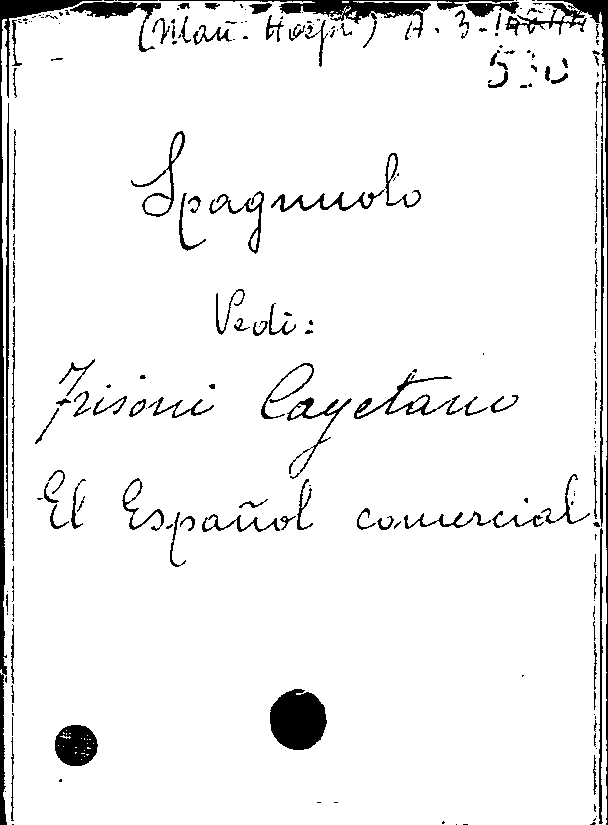 (Man. Hoepli) A. 3.
530
Spagnuolo
Vedi:
Frisoni Cayetano
El Español comercial.